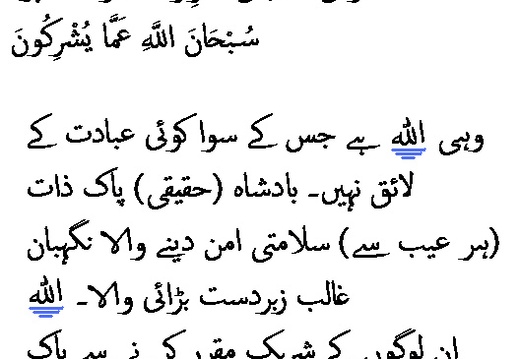 سُبْحَانَ اللَّهِ عَمَّا يُشْرِكُونَ
وہی اللہ ہے جس کے سوا کوئی عبادت کے
لائق نہیں۔ بادشاہ (حقیقی) پاک ذات
(ہر عیب سے) سلامتی امن دینے والا نگہبان
غالب زبردست بڑائی والا۔ اللہ
ان لوگوں کے شریک مقرر کرنے سے پاک